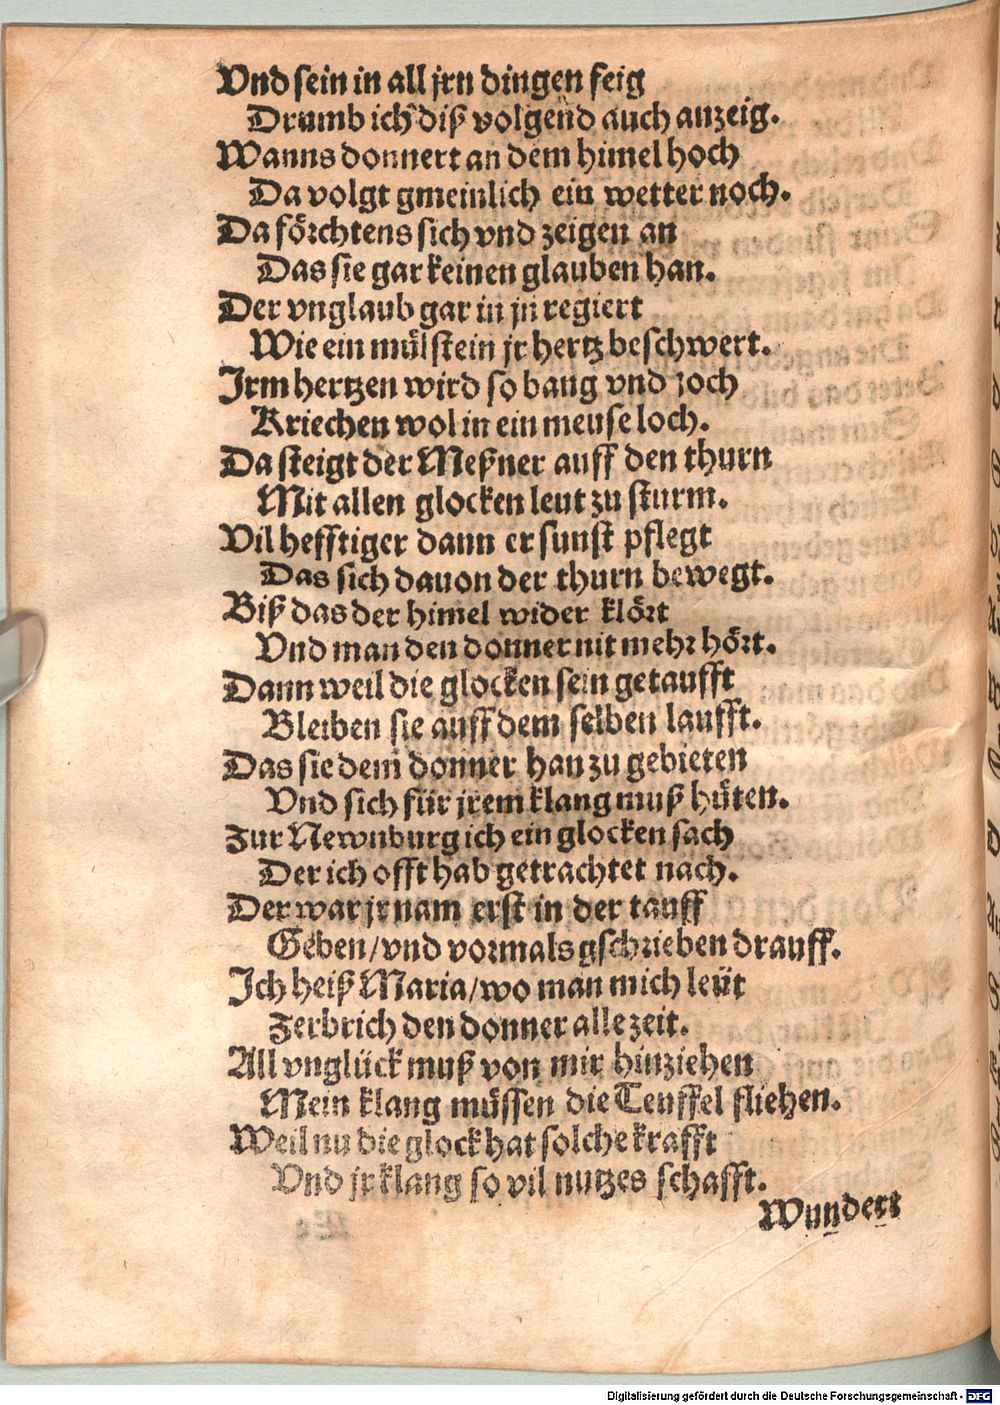 Vnd sein in all jrn dingen feig
Drumb ich diß volgend auch anzeig.
Wanns donnert an dem himel hoch
Da volgt gmeinlich ein wetter noch.
Da förchtens sich vnd zeigen an
Das sie gar keinen glauben han.
Der vnglaub gar in jn regiert
Wie ein mülstein jr hertz beschwert.
Irm hertzen wird so bang vnd zoch
Kriechen wol in ein meuse loch.
Da steigt der Meßner auff den thurn
Mit allen glocken leut zu sturm.
Vil hefftiger dann er sunst pflegt
Das sich dauon der thurn bewegt.
Biß das der himel wider klört
Vnd man den donner nit mehr hört.
Dann weil die glocken sein getaufft
Bleiben sie auff dem selben laufft.
Das sie dem donner han zu gebieten
Vnd sich für jrem klang muß hüten.
Zur Newnburg ich ein glocken sach
Der ich offt hab getrachtet nach.
Der war jr nam erst in der tauff
Geben/vnd vormals gschrieben drauff.
Ich heiß Maria/wo man mich leüt
Zerbrich den donner alle zeit.
All vnglück muß von mir hinziehen
Mein klang müssen die Teuffel fliehen.
Weil nu die glock hat solche krafft
Vnd jr klang so vil nutzes schafft.
Wundert
Digitalisierung gefördert durch die Deutsche Forschungsgemeinschaft - DFG